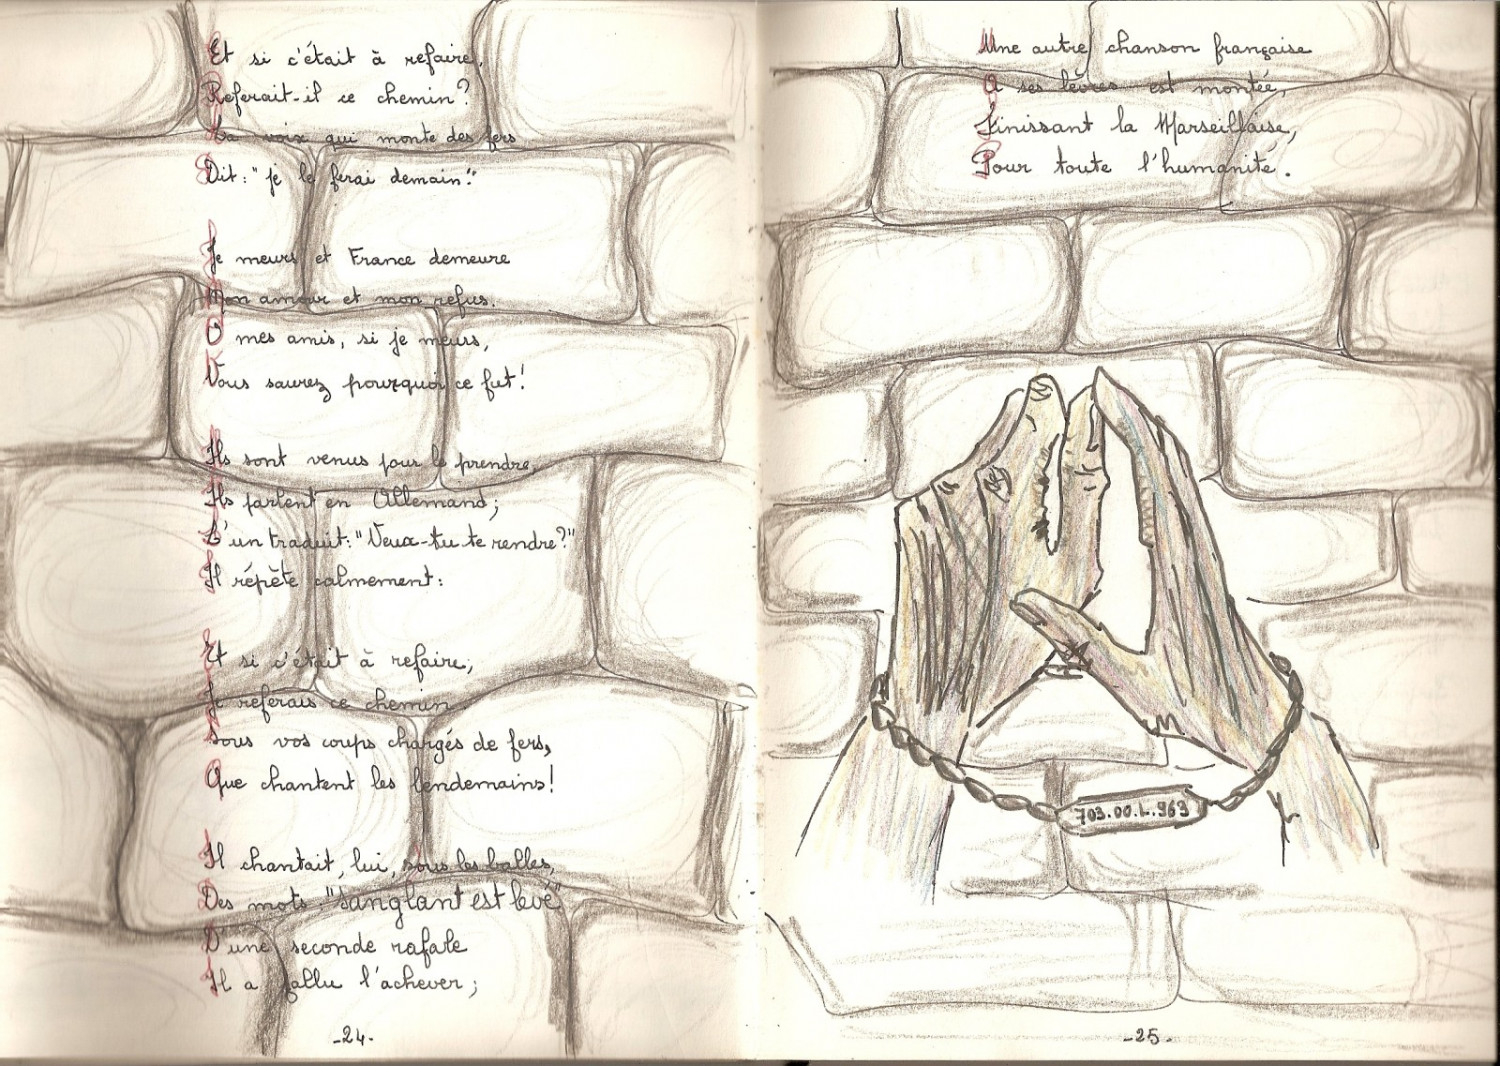 Et si c'était à refaire,
Referait-il ce chemin?
La voix qui monte des fers
Dit: "je le ferai demain."
Je meurs et France demeure
Mon amour et mon refus.
O mes amis, si je meurs,
Vous saurez pourquoi ce fut!
Ils sont venus pour le prendre,
Ils parlent en Allemand;
L'un traduit: "Veux-tu te rendre?"
Il répète calmement:
Et si c'était à refaire,
Je referais ce chemin.
Sous vos coups chargés de fers,
Que chantent les lendemains!
Il chantait, lui, sous les balles,
Des mots "sanglant est levé"
D'une seconde rafale
Il a fallu l'achever;
-24-
Une autre chanson française
A ses lèvres est montée,
Finissant la Marseillaise,
Pour toute l'humanité.
703.00.L.963
-25-